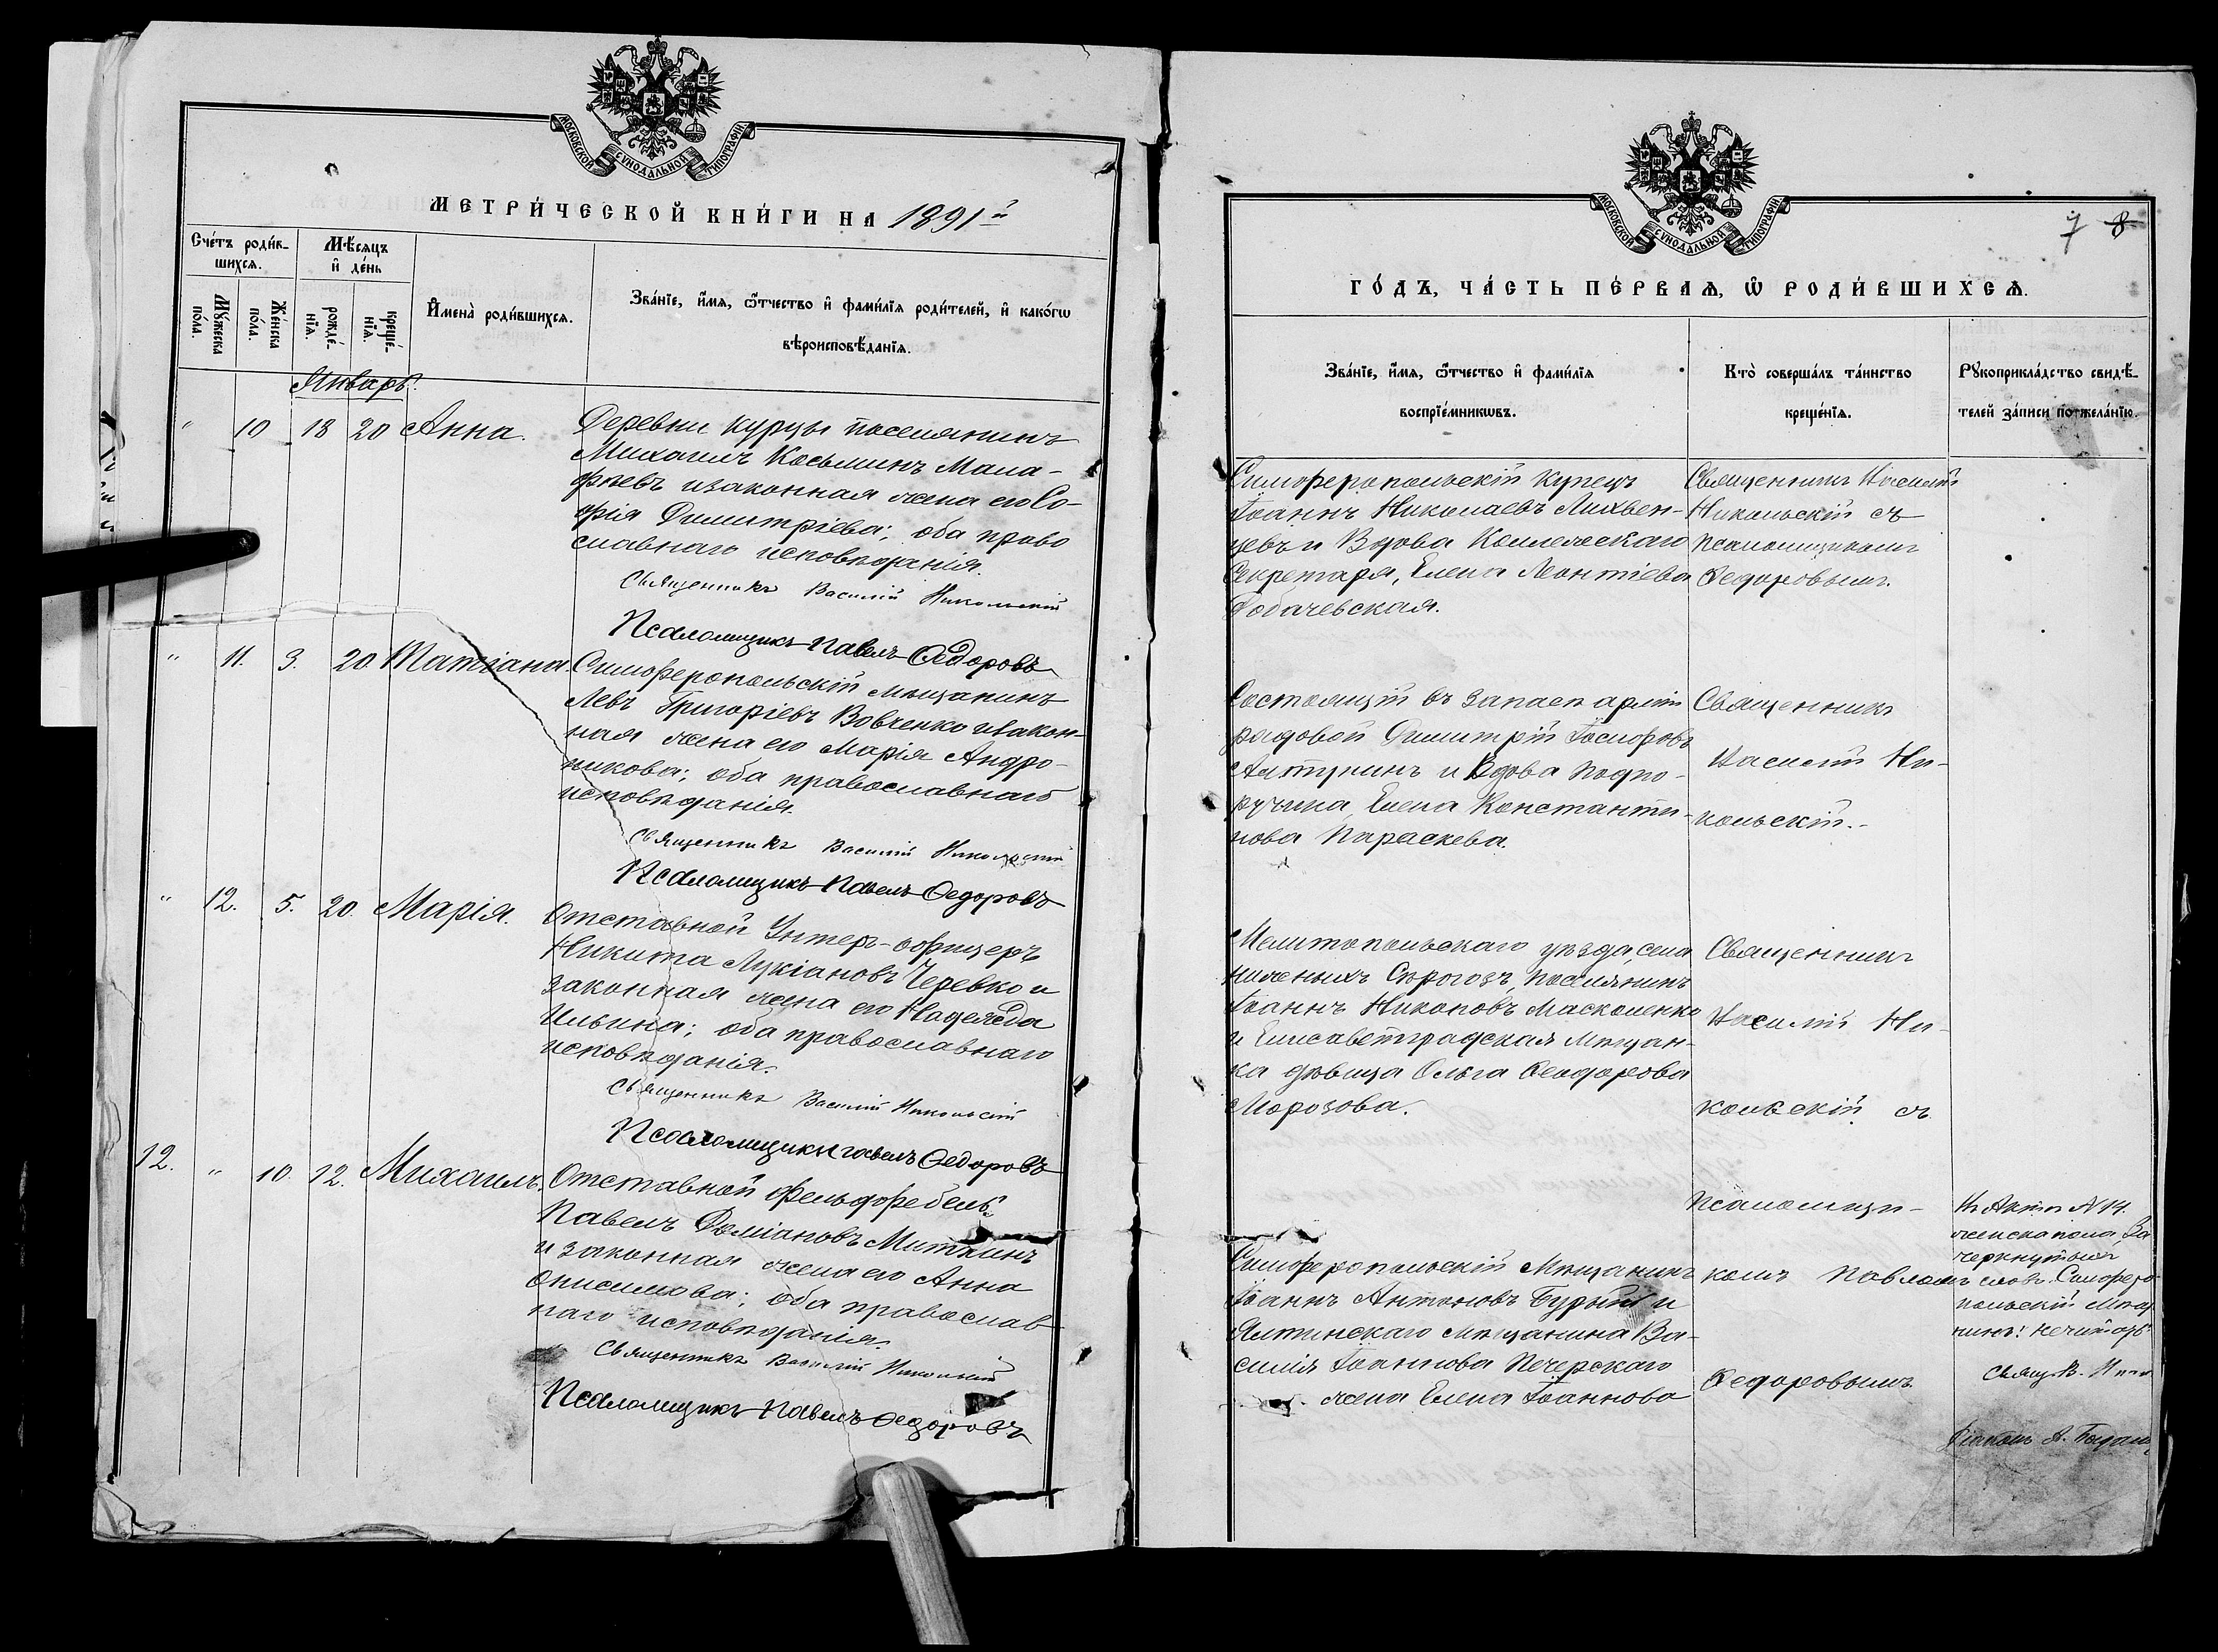 МОСКОВСКОЙ СѴНОДАЛЬНОЙ ТИПОГРАФІИ
МЕТРИ́ЧЕСКОЙ КНИ́ГИ НА 1891й
Сче́тъ роди́в-
шихсѧ.
Мѣ́сѧцъ
и҆ де́нь
Мꙋ́жеска
по́ла.
Же́нска
по́ла.
рожде́-
нїѧ.
креще́-
нїѧ.
И҆мена̀ роди́вшихсѧ.
Зва́нїе, и҆́мѧ, ѻ҆́тчество и҆ фами́лїѧ роди́телей, и҆ како́гѡ
вѣроисповѣ́данїѧ.
Январь.
" 10 18 20 Анна.
Деревни Курцы поселянинъ
Михаилъ Косьминъ Мала-
фѣевъ и законная жена его Со-
фія Димитріева; оба право
славнаго исповѣданія.
Священникъ Василій Никольскій
Псаломщикъ Павелъ Федоровъ
" 11. 3. 20. Татіана
Симферопольскій мѣщанинъ
Левъ Григоріевъ Вовченко и закон-
ная жена его Марія Андро-
никова; оба православнаго
исповѣданія.
Священникъ Василій Никольскій
Псаломщикъ Павелъ Федоровъ
" 12. 5. 20. Марія.
Отставной Унтеръ-офицеръ
Никита Лукіановъ Черевко и
законная жена его Надежда
Ильина; оба православнаго
исповѣданія.
Священникъ Василій Никольскій
Псаломщикъ Павелъ Федоровъ
12. " 10. 12. Михаилъ.
Отставной фельдфебель
Павелъ Деміановъ Миткинъ
и законная жена его Анна
Онисимова; оба православ-
наго исповѣданія.
Священникъ Василій Никольскій
Псаломщикъ Павелъ Федоровъ
МОСКОВСКОЙ СѴНОДАЛЬНОЙ ТИПОГРАФІИ
7 8
ГО́ДЪ, ЧА́СТЬ ПЕ́РВАѦ, Ѡ҆ РОДИ́ВШИХСѦ.
Зва́нїе, и҆́мѧ, ѻ҆́тчество и҆ фами́лїѧ
воспрїе́мникѡвъ.
Кто̀ соверша́лъ та́инство
креще́нїѧ.
Рꙋкоприкла́дство свидѣ́-
телей за́писи по жела́нїю.
Симферопольскій купецъ
Іоаннъ Николаевъ Лихвен-
цевъ и Вдова Коллежскаго
Секретаря, Елена Леонтіева
Лобачевская.
Священникъ Василій
Никольскій съ
псаломщикомъ
Федоровымъ.
Состоящій въ запасѣ арміи
рядовой Димитрій Іосифовъ
Алтунинъ и Вдова Подпо-
ручика, Елена Константи-
нова Параскева.
Священникъ
Василій Ни-
кольскій.
Мелитопольскаго уѣзда, села
Нижнихъ Сѣрогозъ, поселянинъ
Іоаннъ Никоновъ Масколенко
и Елисаветградская Мѣщан-
ка дѣвица Ольга Феодорова
Морозова.
Священникъ
Василій Ни-
кольскій съ
Симферопольскій Мѣщанинъ
Іоаннъ Антоновъ Бурый и
Ялтинскаго Мѣщанина Ва-
силія Іоаннова Печерскаго
жена Елена Іоаннова
псаломщи-
комъ Павломъ
Федоровымъ
Въ Актѣ №14.
женска пола, За
черкнутымъ
словъ: Симферо
польскій Мѣща
нинъ! не читать
Свящ. В. Ник
Діаконъ А.